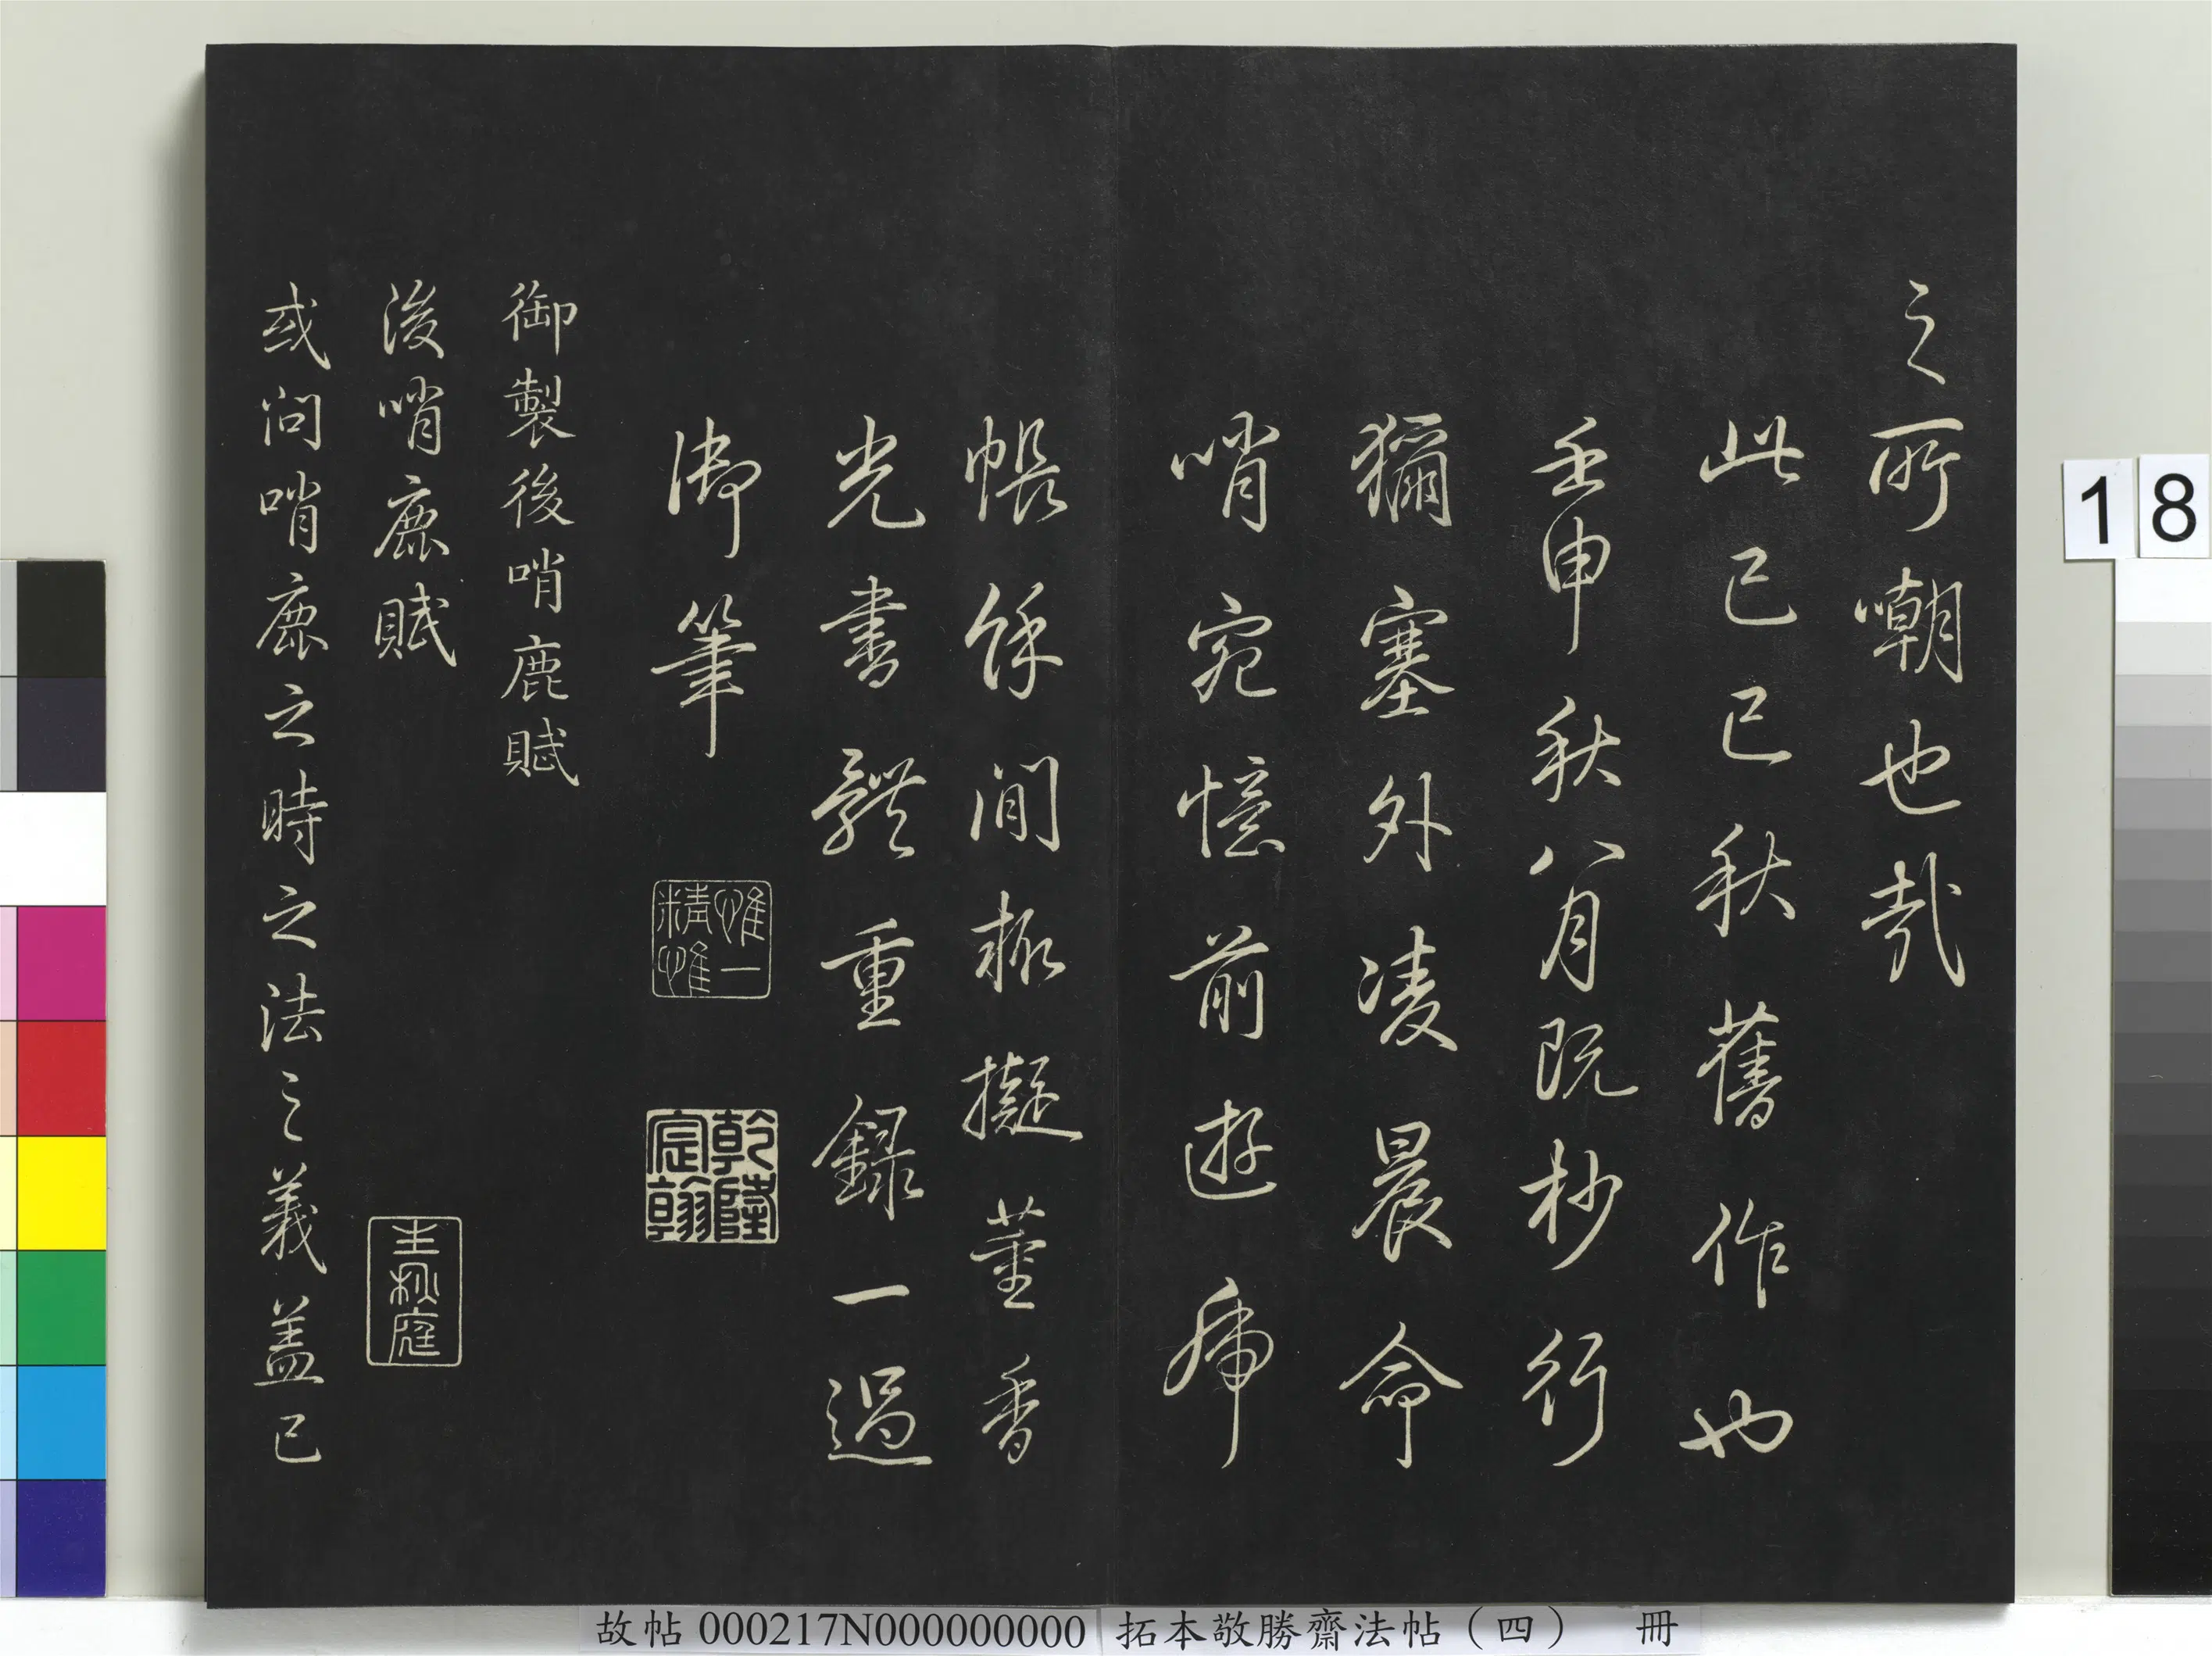 之所嘲也哉
此己巳秋舊作也
壬申秋八月既杪行
獮塞外凌晨命
哨宛憶前遊歸
帳餘閒輒擬董香
光書體重錄一過
御筆
惟精惟一
乾隆宸翰
御製後哨鹿賦
後哨鹿賦
主秋庭
或問哨鹿之時之法之義蓋已
18
故帖000217N000000000 拓本敬勝齋法帖(四) 冊